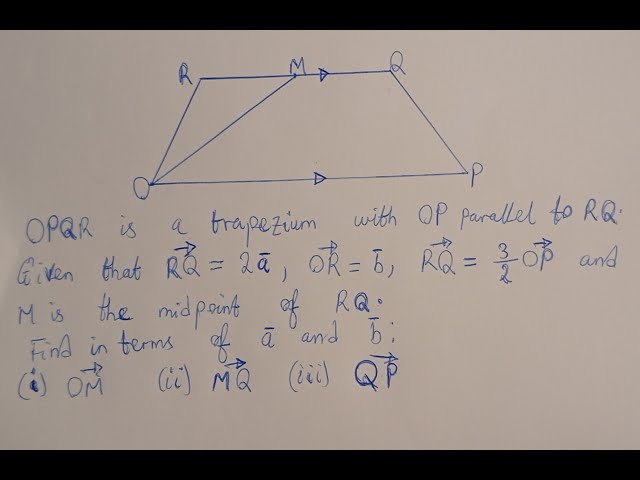 R M Q
O P
OPQR is a trapezium with OP parallel to RQ.
Given that $\overrightarrow{RQ} = 2\bar{a}$, $\overrightarrow{OR} = \bar{b}$, $\overrightarrow{RQ} = \frac{3}{2}\overrightarrow{OP}$ and
M is the midpoint of RQ.
Find in terms of $\bar{a}$ and $\bar{b}$:
(i) $\overrightarrow{OM}$ (ii) $\overrightarrow{MQ}$ (iii) $\overrightarrow{QP}$